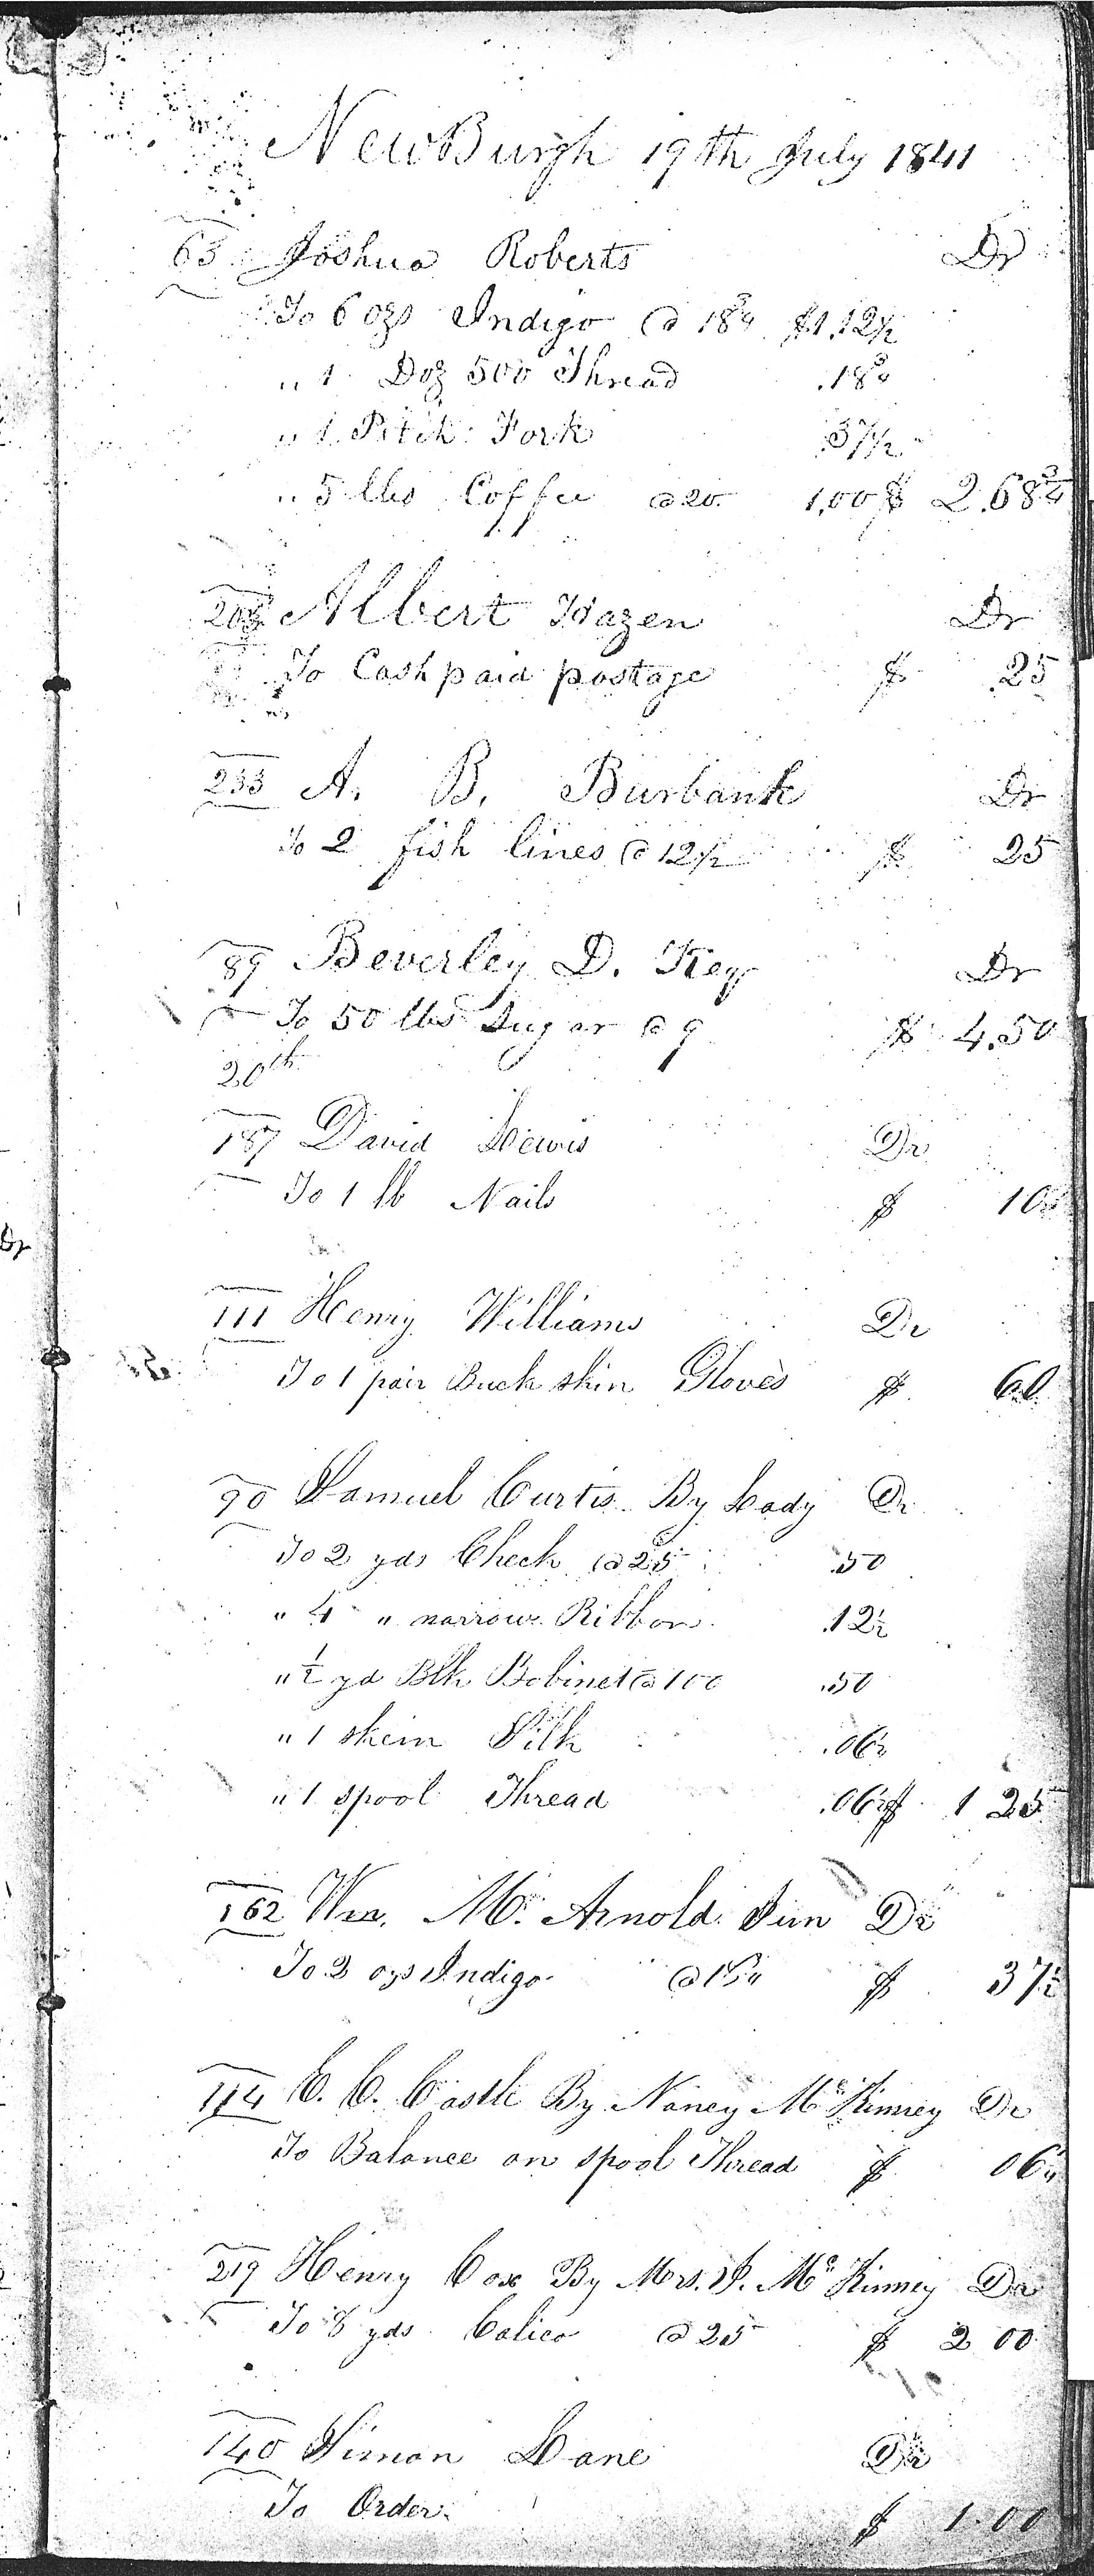 NewBurgh 19th July 1841
63 Joshua Roberts Dr
To 6 ozs Indigo @ 18¾ $1.12½
" 1 Doz 500 Thread .18¾
" 1 Pitch Fork .37½
" 5 lbs Coffee @ 20. 1,00 $ 2.68¾
Albert Hazen Dr
To Cash paid postage $ .25
233 A. B. Burbank Dr
To 2 fish lines @ 12½ $ 25
89 Beverley D. Key Dr
To 50 lbs Sugar @ 9 $ 4.50
20th
187 David Lewis Dr
To 1 lb Nails $ 10
111 Henry Williams Dr
To 1 pair Buck skin Gloves $ 60
90 Samuel Curtis By Lady Dr
To 2 yds Check @ 25 .50
" 4 " narrow Ribbon .12½
" ½ yd Blk Bobinet @ 100 .50
" 1 skein Silk .06¼
" 1 spool Thread .06¼ $ 1 25
162 Wm. Mc Arnold Jun Dr
To 2 ozs Indigo @ 18¾ $ 37½
114 C. C. Castle By Nancy McKinney Dr
To Balance on spool Thread $ 06¼
219 Henry Cox By Mrs. J. McKinney Dr
To 8 yds Calico @ 25 $ 2 00
140 Simon Lane Dr
To Order $ 1.00